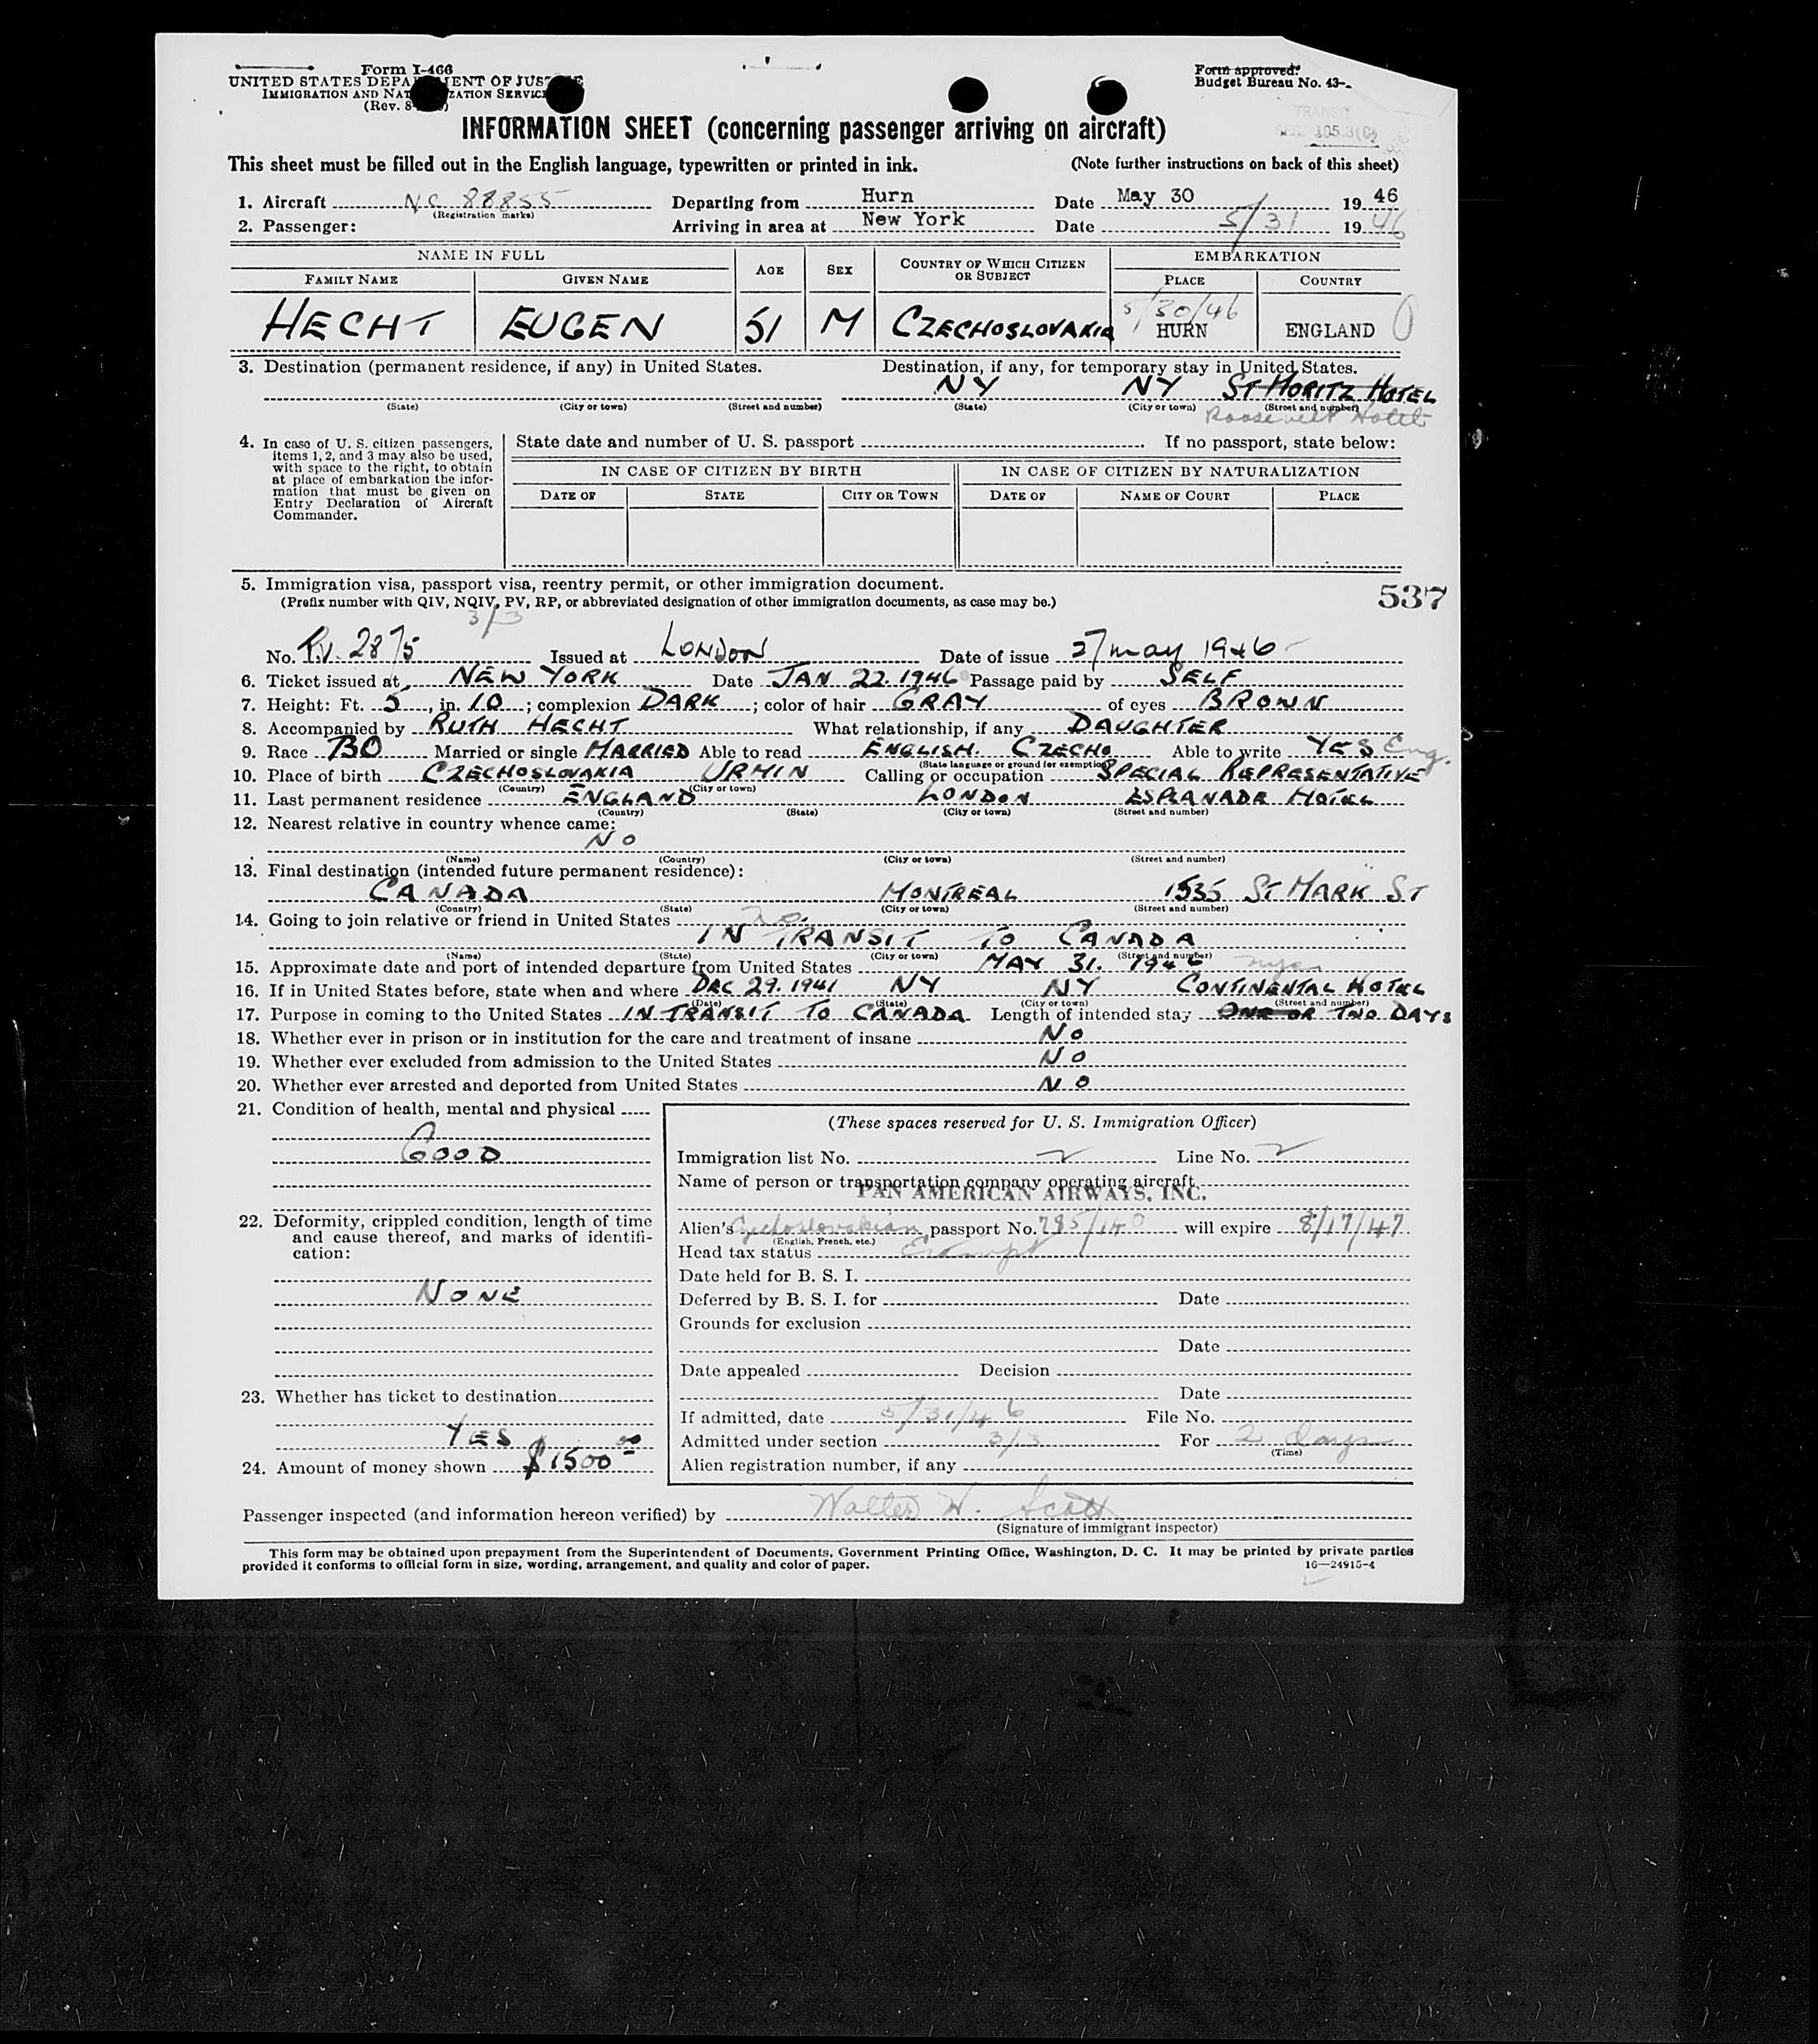 Form I-466
UNITED STATES DEPARTMENT OF JUSTICE
IMMIGRATION AND NATURALIZATION SERVICE
(Rev. 8-
Form approved.
Budget Bureau No. 43-
TRANSIT
105.3(C)
INFORMATION SHEET (concerning passenger arriving on aircraft)
This sheet must be filled out in the English language, typewritten or printed in ink. (Note further instructions on back of this sheet)
1. Aircraft NC 88855 Departing from Hurn Date May 30 1946
(Registration marks)
2. Passenger: Arriving in area at New York Date 5/31 1946
NAME IN FULL AGE SEX COUNTRY OF WHICH CITIZEN OR SUBJECT EMBARKATION
FAMILY NAME GIVEN NAME PLACE COUNTRY
5/30/46
HECHT EUGEN 51 M CZECHOSLOVAKIA HURN ENGLAND
3. Destination (permanent residence, if any) in United States. Destination, if any, for temporary stay in United States.
NY NY ST MORITZ HOTEL
(State) (City or town) (Street and number) (State) (City or town) (Street and number)
Roosevelt Hotel
4. In case of U. S. citizen passengers, items 1, 2, and 3 may also be used, with space to the right, to obtain at place of embarkation the information that must be given on Entry Declaration of Aircraft Commander.
State date and number of U. S. passport If no passport, state below:
IN CASE OF CITIZEN BY BIRTH IN CASE OF CITIZEN BY NATURALIZATION
DATE OF STATE CITY OR TOWN DATE OF NAME OF COURT PLACE
5. Immigration visa, passport visa, reentry permit, or other immigration document.
(Prefix number with QIV, NQIV, PV, RP, or abbreviated designation of other immigration documents, as case may be.)
537
3/3
No. P.V. 2875 Issued at LONDON Date of issue 27 may 1946
6. Ticket issued at NEW YORK Date JAN 22. 1946 Passage paid by SELF
7. Height: Ft. 5, in. 10; complexion DARK; color of hair GRAY of eyes BROWN
8. Accompanied by RUTH HECHT What relationship, if any DAUGHTER
9. Race BO Married or single MARRIED Able to read ENGLISH. CZECHO Able to write YES Eng.
(State language or ground for exemption)
10. Place of birth CZECHOSLOVAKIA URMIN Calling or occupation SPECIAL REPRESENTATIVE
(Country) (City or town)
11. Last permanent residence ENGLAND LONDON ESPLANADE HOTEL
(Country) (State) (City or town) (Street and number)
12. Nearest relative in country whence came:
NO
(Name) (Country) (City or town) (Street and number)
13. Final destination (intended future permanent residence):
CANADA MONTREAL 1535 ST MARK ST
(Country) (State) (City or town) (Street and number)
14. Going to join relative or friend in United States no.
IN TRANSIT TO CANADA
(Name) (State) (City or town) (Street and number)
15. Approximate date and port of intended departure from United States MAY 31. 1946
16. If in United States before, state when and where DEC 29. 1941 NY NY CONTINENTAL HOTEL
(Date) (State) (City or town) (Street and number)
17. Purpose in coming to the United States IN TRANSIT TO CANADA Length of intended stay ONE OR TWO DAYS
18. Whether ever in prison or in institution for the care and treatment of insane NO
19. Whether ever excluded from admission to the United States NO
20. Whether ever arrested and deported from United States NO
21. Condition of health, mental and physical
GOOD
22. Deformity, crippled condition, length of time and cause thereof, and marks of identification:
NONE
23. Whether has ticket to destination
YES
24. Amount of money shown $1500 00
(These spaces reserved for U. S. Immigration Officer)
Immigration list No. 2 Line No. 2
Name of person or transportation company operating aircraft
PAN AMERICAN AIRWAYS, INC.
Alien's Czechoslovakian passport No. 785/140 will expire 8/17/47
(English, French, etc.)
Head tax status Exempt
Date held for B. S. I.
Deferred by B. S. I. for Date
Grounds for exclusion
Date
Date appealed Decision
Date
If admitted, date 5/31/46 File No.
Admitted under section 3/3 For 2 days
(Time)
Alien registration number, if any
Passenger inspected (and information hereon verified) by Walter W. Scott
(Signature of immigrant inspector)
This form may be obtained upon prepayment from the Superintendent of Documents, Government Printing Office, Washington, D. C. It may be printed by private parties
provided it conforms to official form in size, wording, arrangement, and quality and color of paper. 16—24915-4